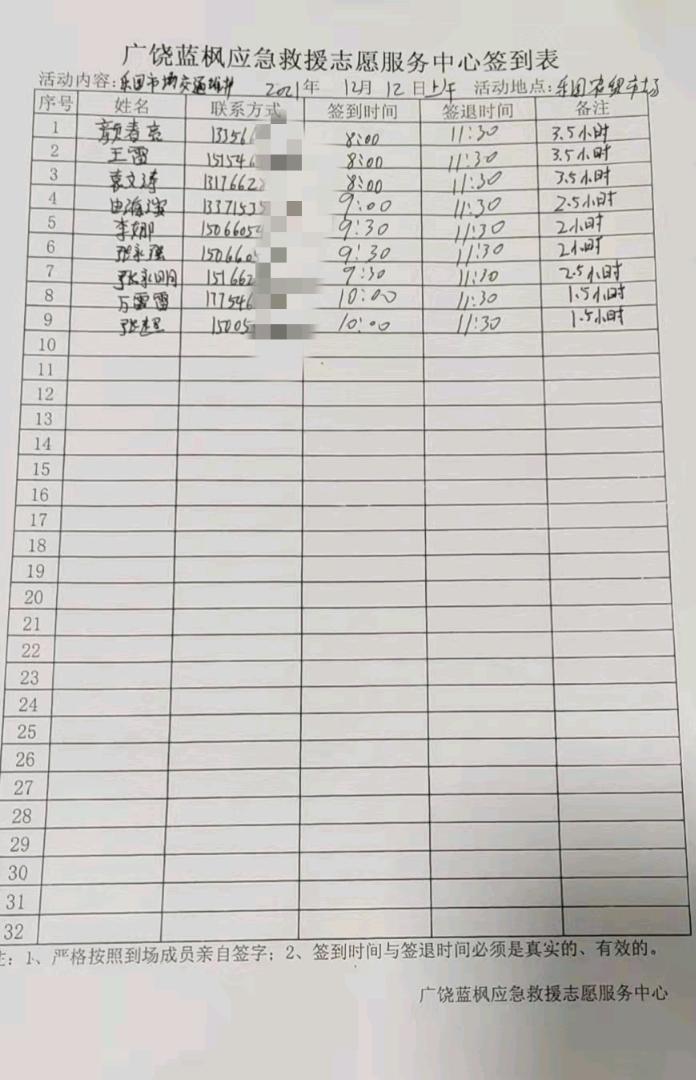 广饶蓝枫应急救援志愿服务中心签到表
活动内容:乐园市场交通维护 2021年 12月 12日上午 活动地点:乐园农贸市场
序号 姓名 联系方式 签到时间 签退时间 备注
1 颜春亮 13356 8:00 11:30 3.5小时
2 王雷 151546 8:00 11:30 3.5小时
3 袁文涛 1317662 8:00 11:30 3.5小时
4 1337153 9:00 11:30 2.5小时
5 李娜 1506605 9:30 11:30 2小时
6 张永强 150660 9:30 11:30 2小时
7 张永明 151662 9:30 11:30 2.5小时
8 万雷雷 177546 10:00 11:30 1.5小时
9 张超 15005 10:00 11:30 1.5小时
10
11
12
13
14
15
16
17
18
19
20
21
22
23
24
25
26
27
28
29
30
31
32
注：1、严格按照到场成员亲自签字；2、签到时间与签退时间必须是真实的、有效的。
广饶蓝枫应急救援志愿服务中心